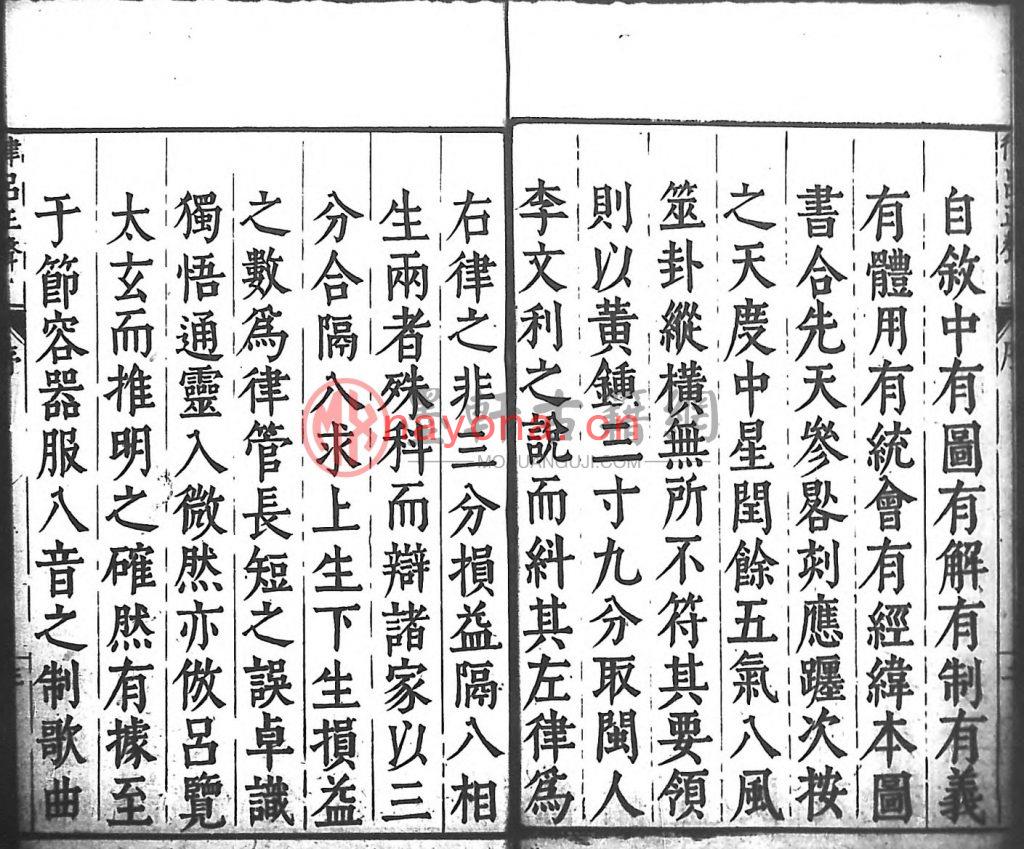 自敘中有圖有解有制有義
有體用有統會有經緯本圖
書合先天參晷刻應躔次按
之天度中星閏餘五氣八風
筮卦縱橫無所不符其要領
則以黃鍾三寸九分取閩人
李文利之說而糾其左律為
右律之非三分損益隔八相
生兩者殊科而辯諸家以三
分合隔八求上生下生損益
之數為律管長短之誤卓識
獨悟通靈入微然亦倣呂覽
太玄而推明之確然有據至
于節容器服八音之制歌曲
律呂正聲
序
墨軒古籍網
nayona.cn
MOXUANGUJI.COM